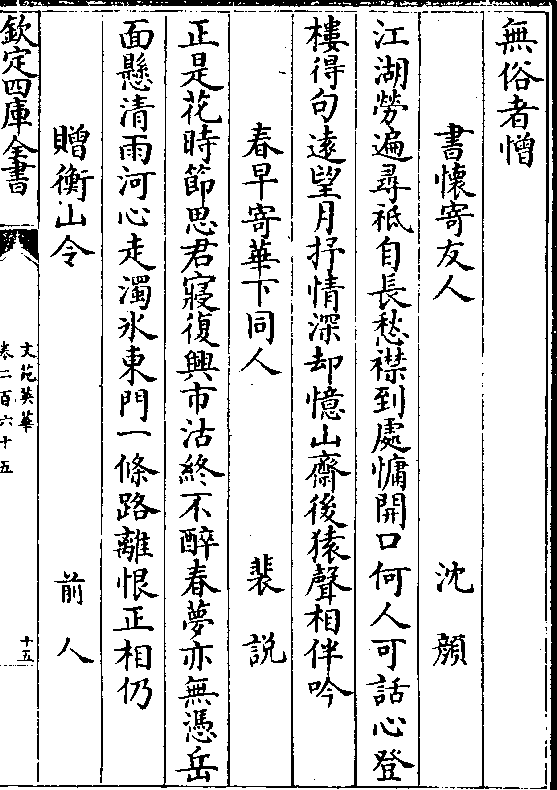 無俗者憎
書懷寄友人　沈顔
江湖勞遍尋祗自長愁襟到處慵開口何人可話心登
樓得句遠望月抒情深却憶山齋後猿聲相伴吟
春早寄華下同人　裴説
正是花時節思君寢復興市沽終不醉春夢亦無憑岳
面懸清雨河心走濁氷東門一條路離恨正相仍
贈衡山令　前人
欽定四庫全書
文苑英華
卷二百六十五
十五